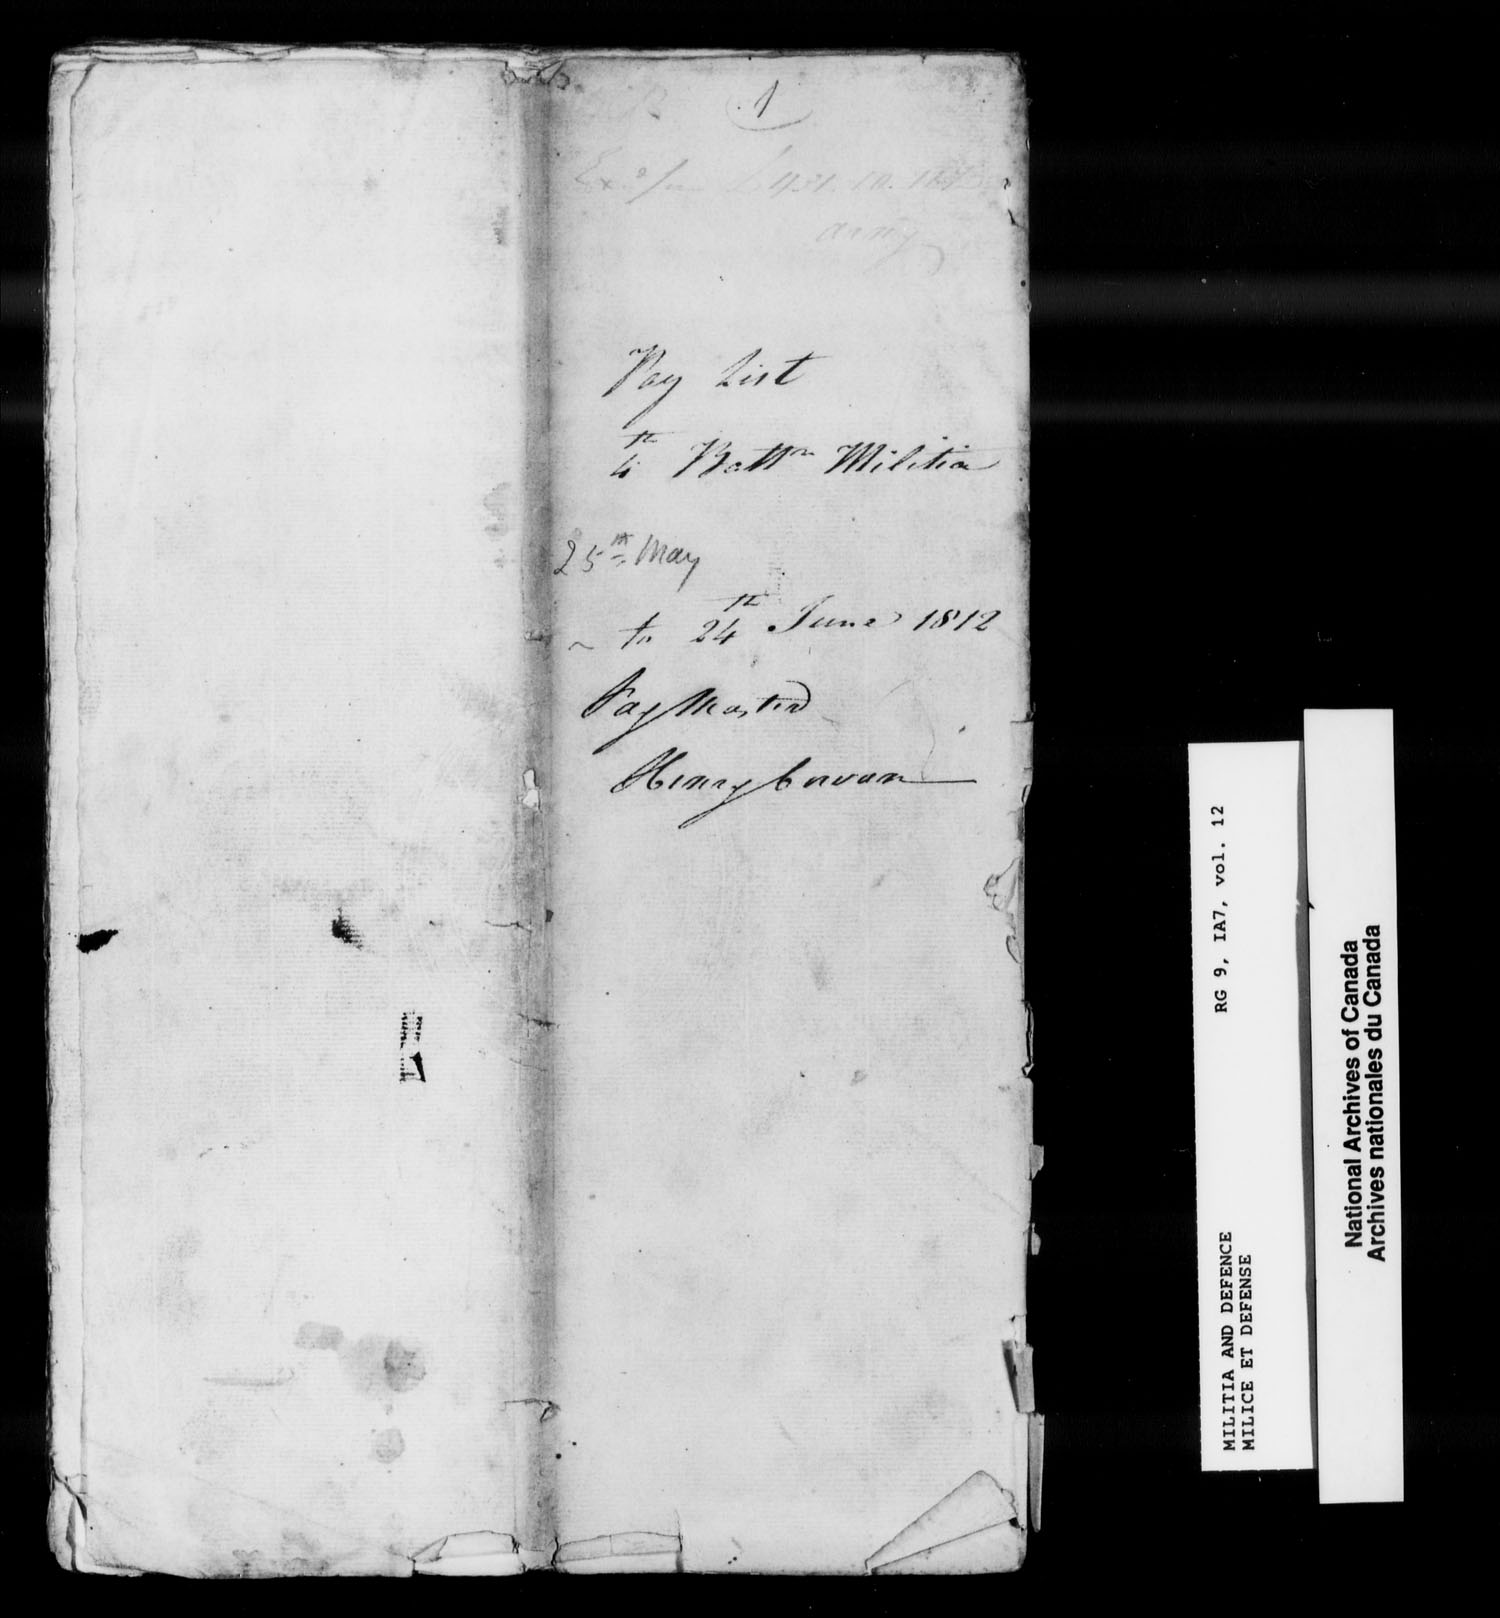 1
army
Pay List
4th Battn Militia
25th May
~ to 24th June 1812
Pay Master
Henry Cowan
RG 9, IA7, vol. 12
MILITIA AND DEFENCE
MILICE ET DEFENSE
National Archives of Canada
Archives nationales du Canada